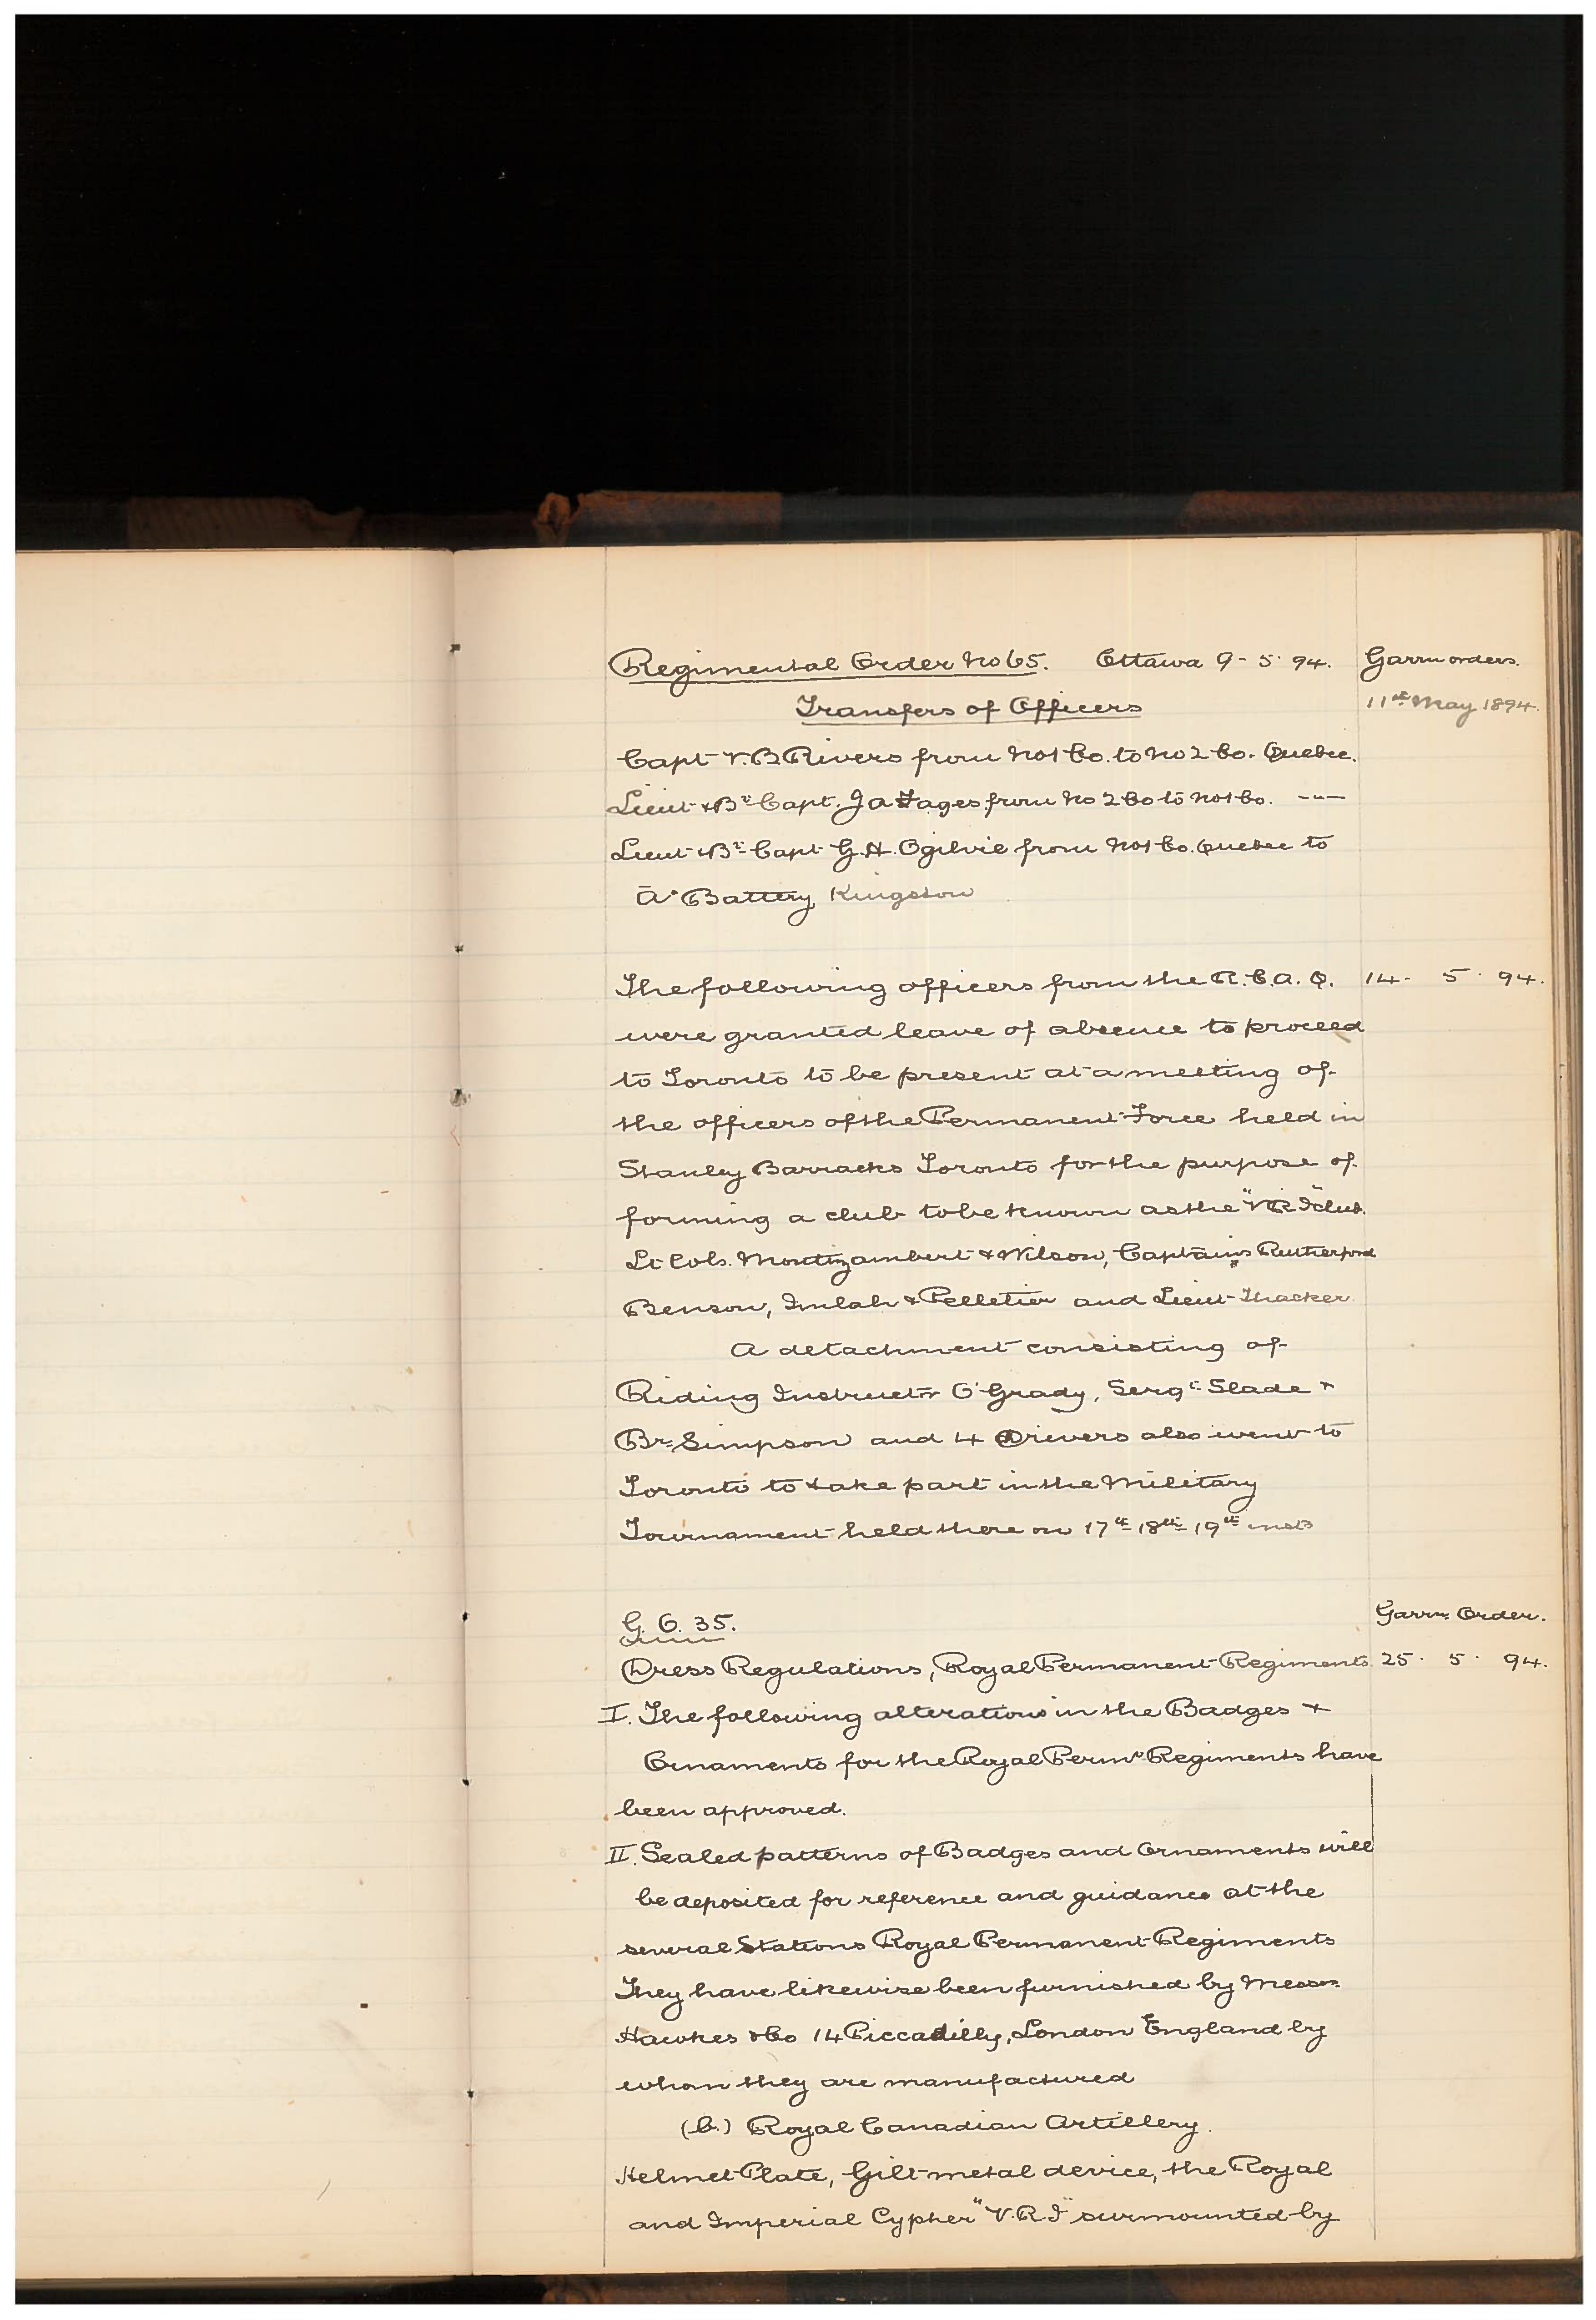 Regimental Order No 65. Ottawa 9-5-94. Garrn orders.
Transfers of Officers 11th May 1894.
Capt V. B Rivers from No 1 Co. to No 2 Co. Quebec.
Lieut & Bt Capt. J A Fages from No 2 Co to No 1 Co. -"-
Lieut & Bt Capt G. H. Ogilvie from No 1 Co. Quebec to
"A" Battery Kingston
The following officers from the R. C. A. Q. 14 - 5 - 94.
were granted leave of absence to proceed
to Toronto to be present at a meeting of
the officers of the Permanent Force held in
Stanley Barracks Toronto for the purpose of
forming a club to be known as the "VRI" club.
Lt Cols. Montizambert & Wilson, Captains Rutherford
Benson, Imlah & Pelletier and Lieut Thacker
A detachment consisting of
Riding Instructr O'Grady, Sergt Slade &
Br Simpson and 4 Drivers also went to
Toronto to take part in the Military
Tournament held there on 17th 18th 19th insts
G. O. 35. Garrn Order.
Dress Regulations, Royal Permanent Regiments 25 - 5 - 94.
I. The following alterations in the Badges &
Ornaments for the Royal Permt Regiments have
been approved.
II. Sealed patterns of Badges and Ornaments will
be deposited for reference and guidance at the
several Stations Royal Permanent Regiments
They have likewise been furnished by Messrs
Hawkes & Co 14 Piccadilly, London England by
whom they are manufactured
(b.) Royal Canadian Artillery.
Helmet Plate, Gilt metal device, the Royal
and Imperial Cypher "V.R.I" surmounted by